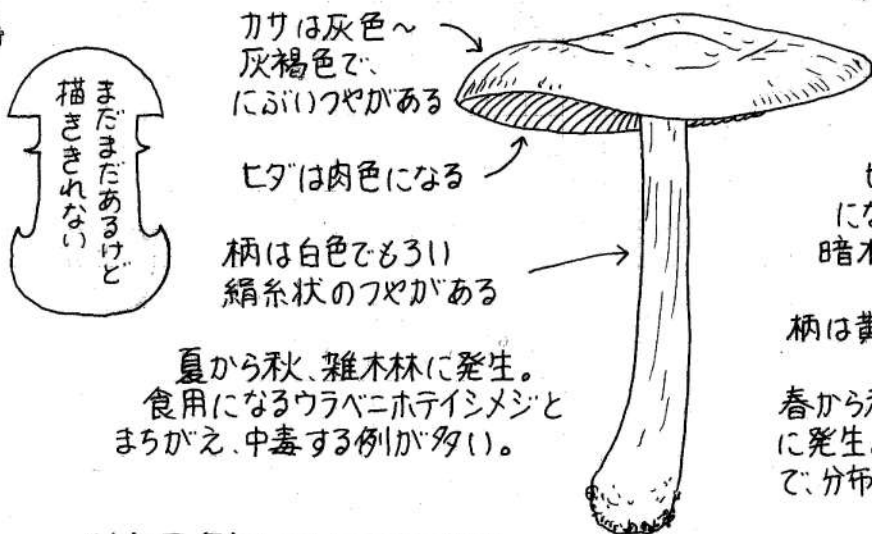 まだまだあるけど
描ききれない
カサは灰色～
灰褐色で、
にぶいつやがある
ヒダは肉色になる
柄は白色でもろい
絹糸状のつやがある
夏から秋、雑木林に発生。
食用になるウラベニホテイシメジと
まちがえ、中毒する例が多い。
にな
暗木
柄は黄
春から秋
に発生。
で、分布